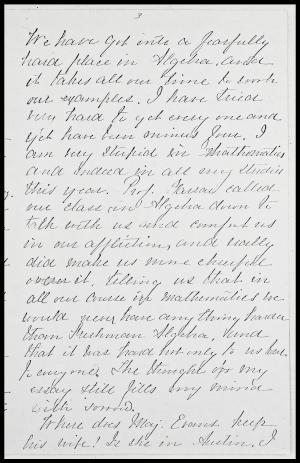 3
We have got into a fearfully
hard place in Algebra, and
it takes all our time to work
our examples. I have tried
very hard to get every one and
yet have even minus some. I
am very stupid in Mathematics
and indeed in all my studies
this year. Prof. called
our class in Algebra down to
talk with us and comfort us
in our affliction, and really
did make us more cheerful
over it, telling us that in
all our course in mathematics we
would never have any thing harder
than Freshman Algebra, and
that it was hard not only to us but
to everyone. The thought of my
essay still fills my mind
with sorrow.
Where does Maj. Evans keep
his wife? Is she in Austin. I